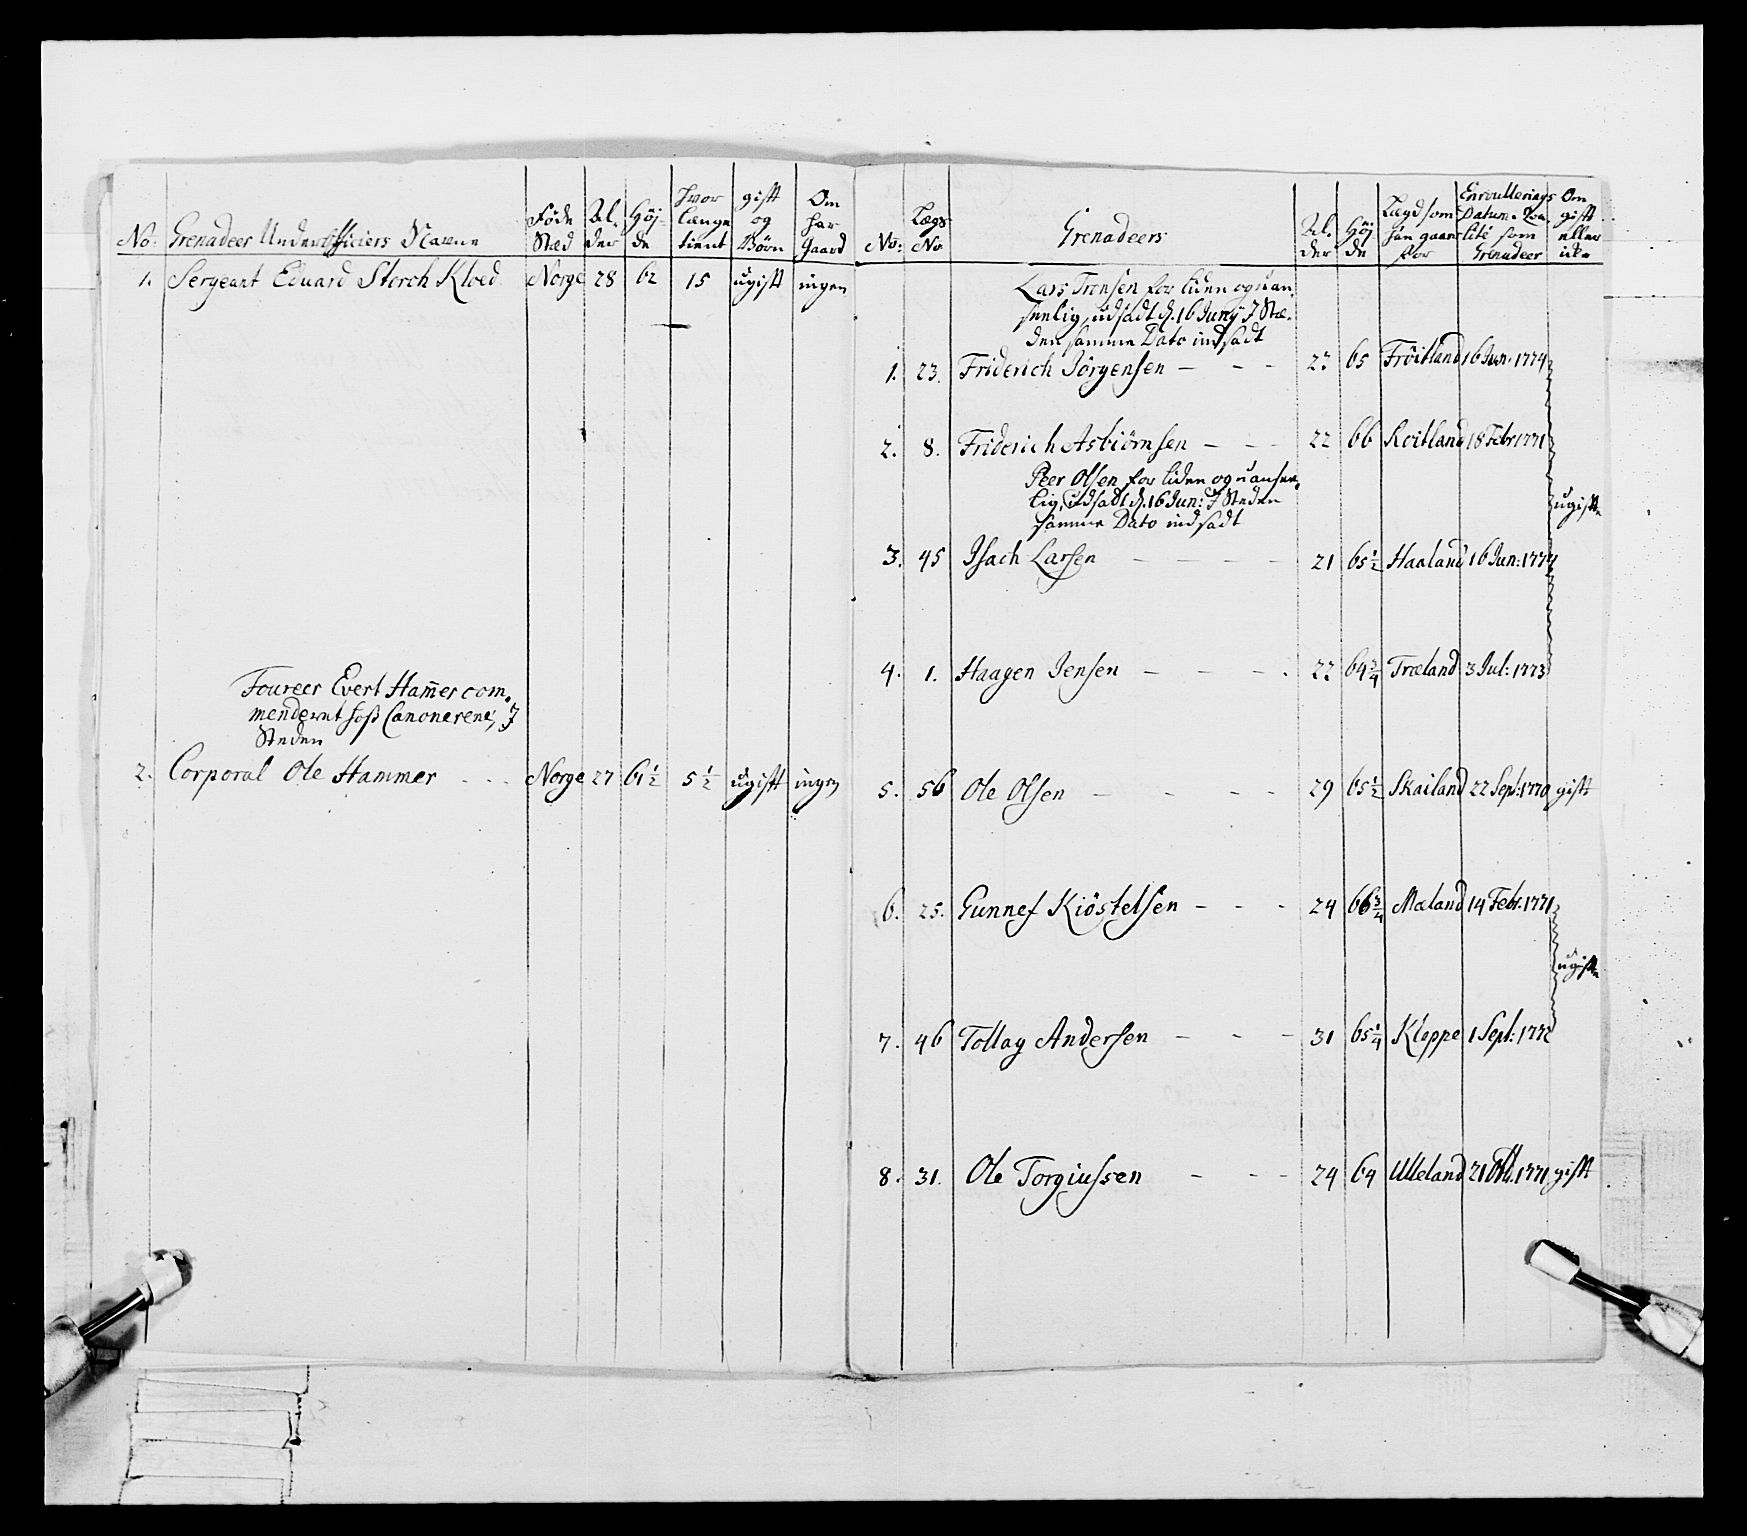 No: Grenadeer Underofficiers Navne Føde Stæd Alder Høide Hvor længe tient gift og Børn Om har Gaard
1. Sergeant Eduard Storch Kloed Norge 28 62 15 ugift ingen
Foureer Evert Ham̄er com-
menderet hoss Canonerene, J
Steden
2. Corporal Ole Hammer Norge 27 61½ 5½ ugift ingen
No: Lægs No Grenadeers Alder Høide Lægd som han gaar for Enroullerings Datum qvalité som Grenadeer Om gifft eller ikke
Lars Tronsen for liden og uan-
seelig, udsadt d. 16 Junÿ J Stæ-
den samme Dato indsadt
1. 23. Friderich Jörgensen 65 Fröitland 16 Jun: 1774
2. 8. Friderich Asbiörnsen 22 66 Roitland 18 Febr 1771
Peer Olsen for liden og uansee-
lig, udsadt d. 16 Jun: J Steden
samme Dato indsadt
ugifte
3. 45 Isach Larsen 21 65½ Haaland 16 Jun: 1774
4. 1. Haagen Jensen 22 64¾ Træland 3 Jul: 1773
5. 56 Ole Olsen 29 65½ Skailand 22 Sept: 1770 gift
6. 25. Gunnef Kiöstelsen 24 66¾ Mæland 14 Febr. 1771
ugifte
7. 46 Tollag Andersen 31 65¼ Kleppe 1 Sept: 1772
8. 31. Ole Torgiussen 24 64 Ulleland 21 1771 gift